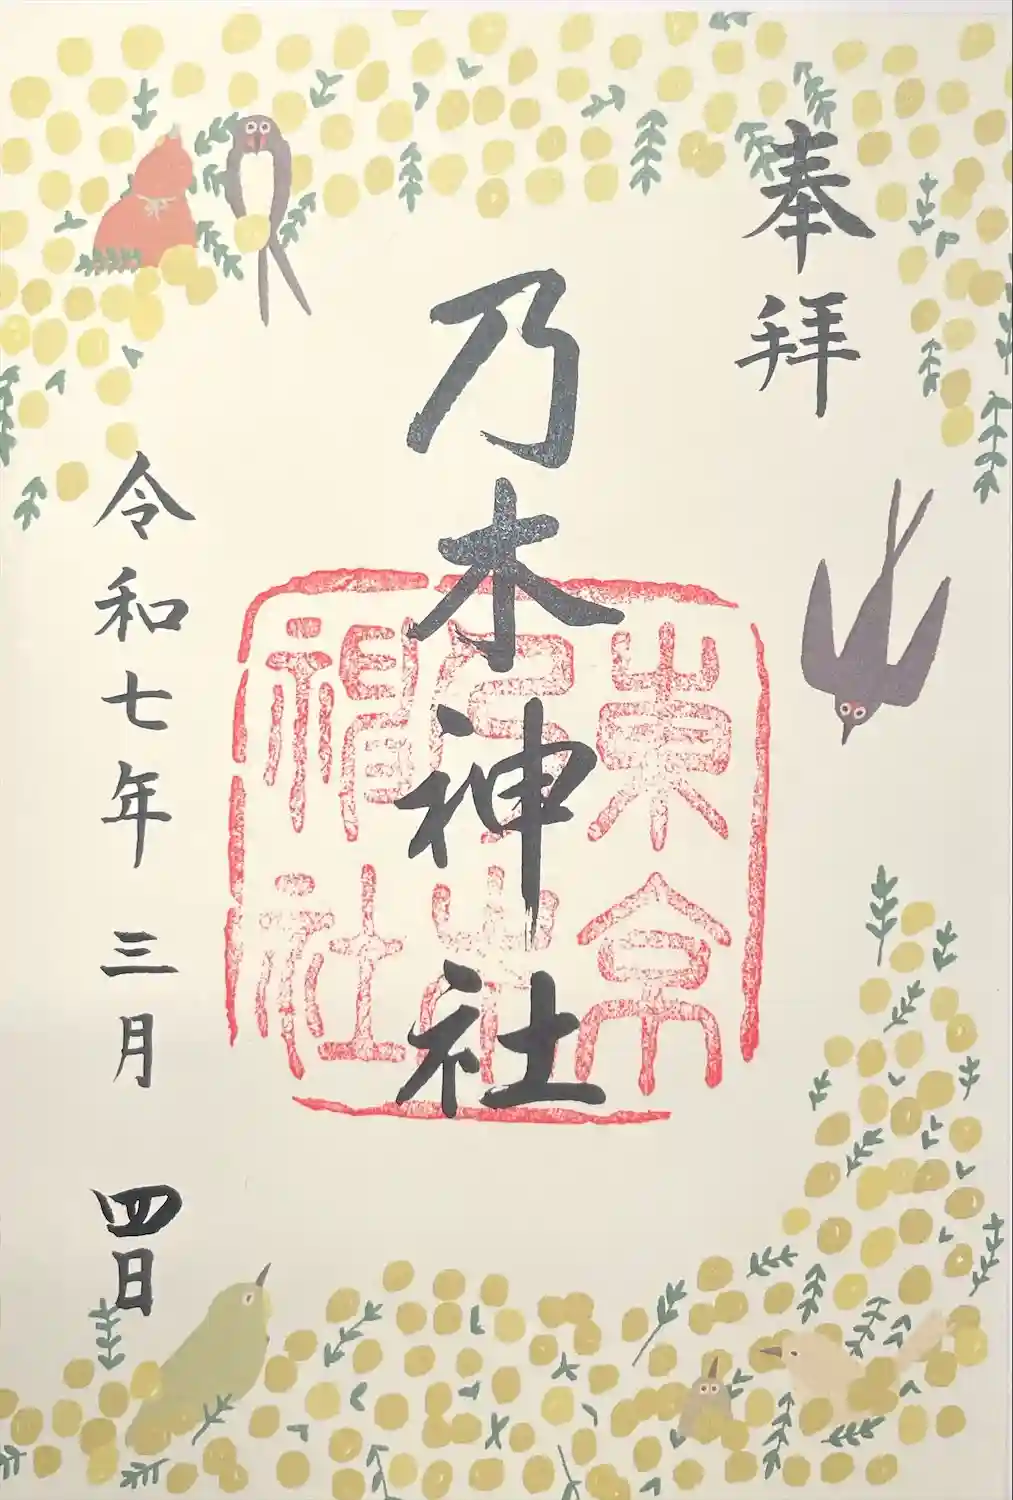 奉拝
乃木神社
東京
乃木
神社
令和七年三月四日